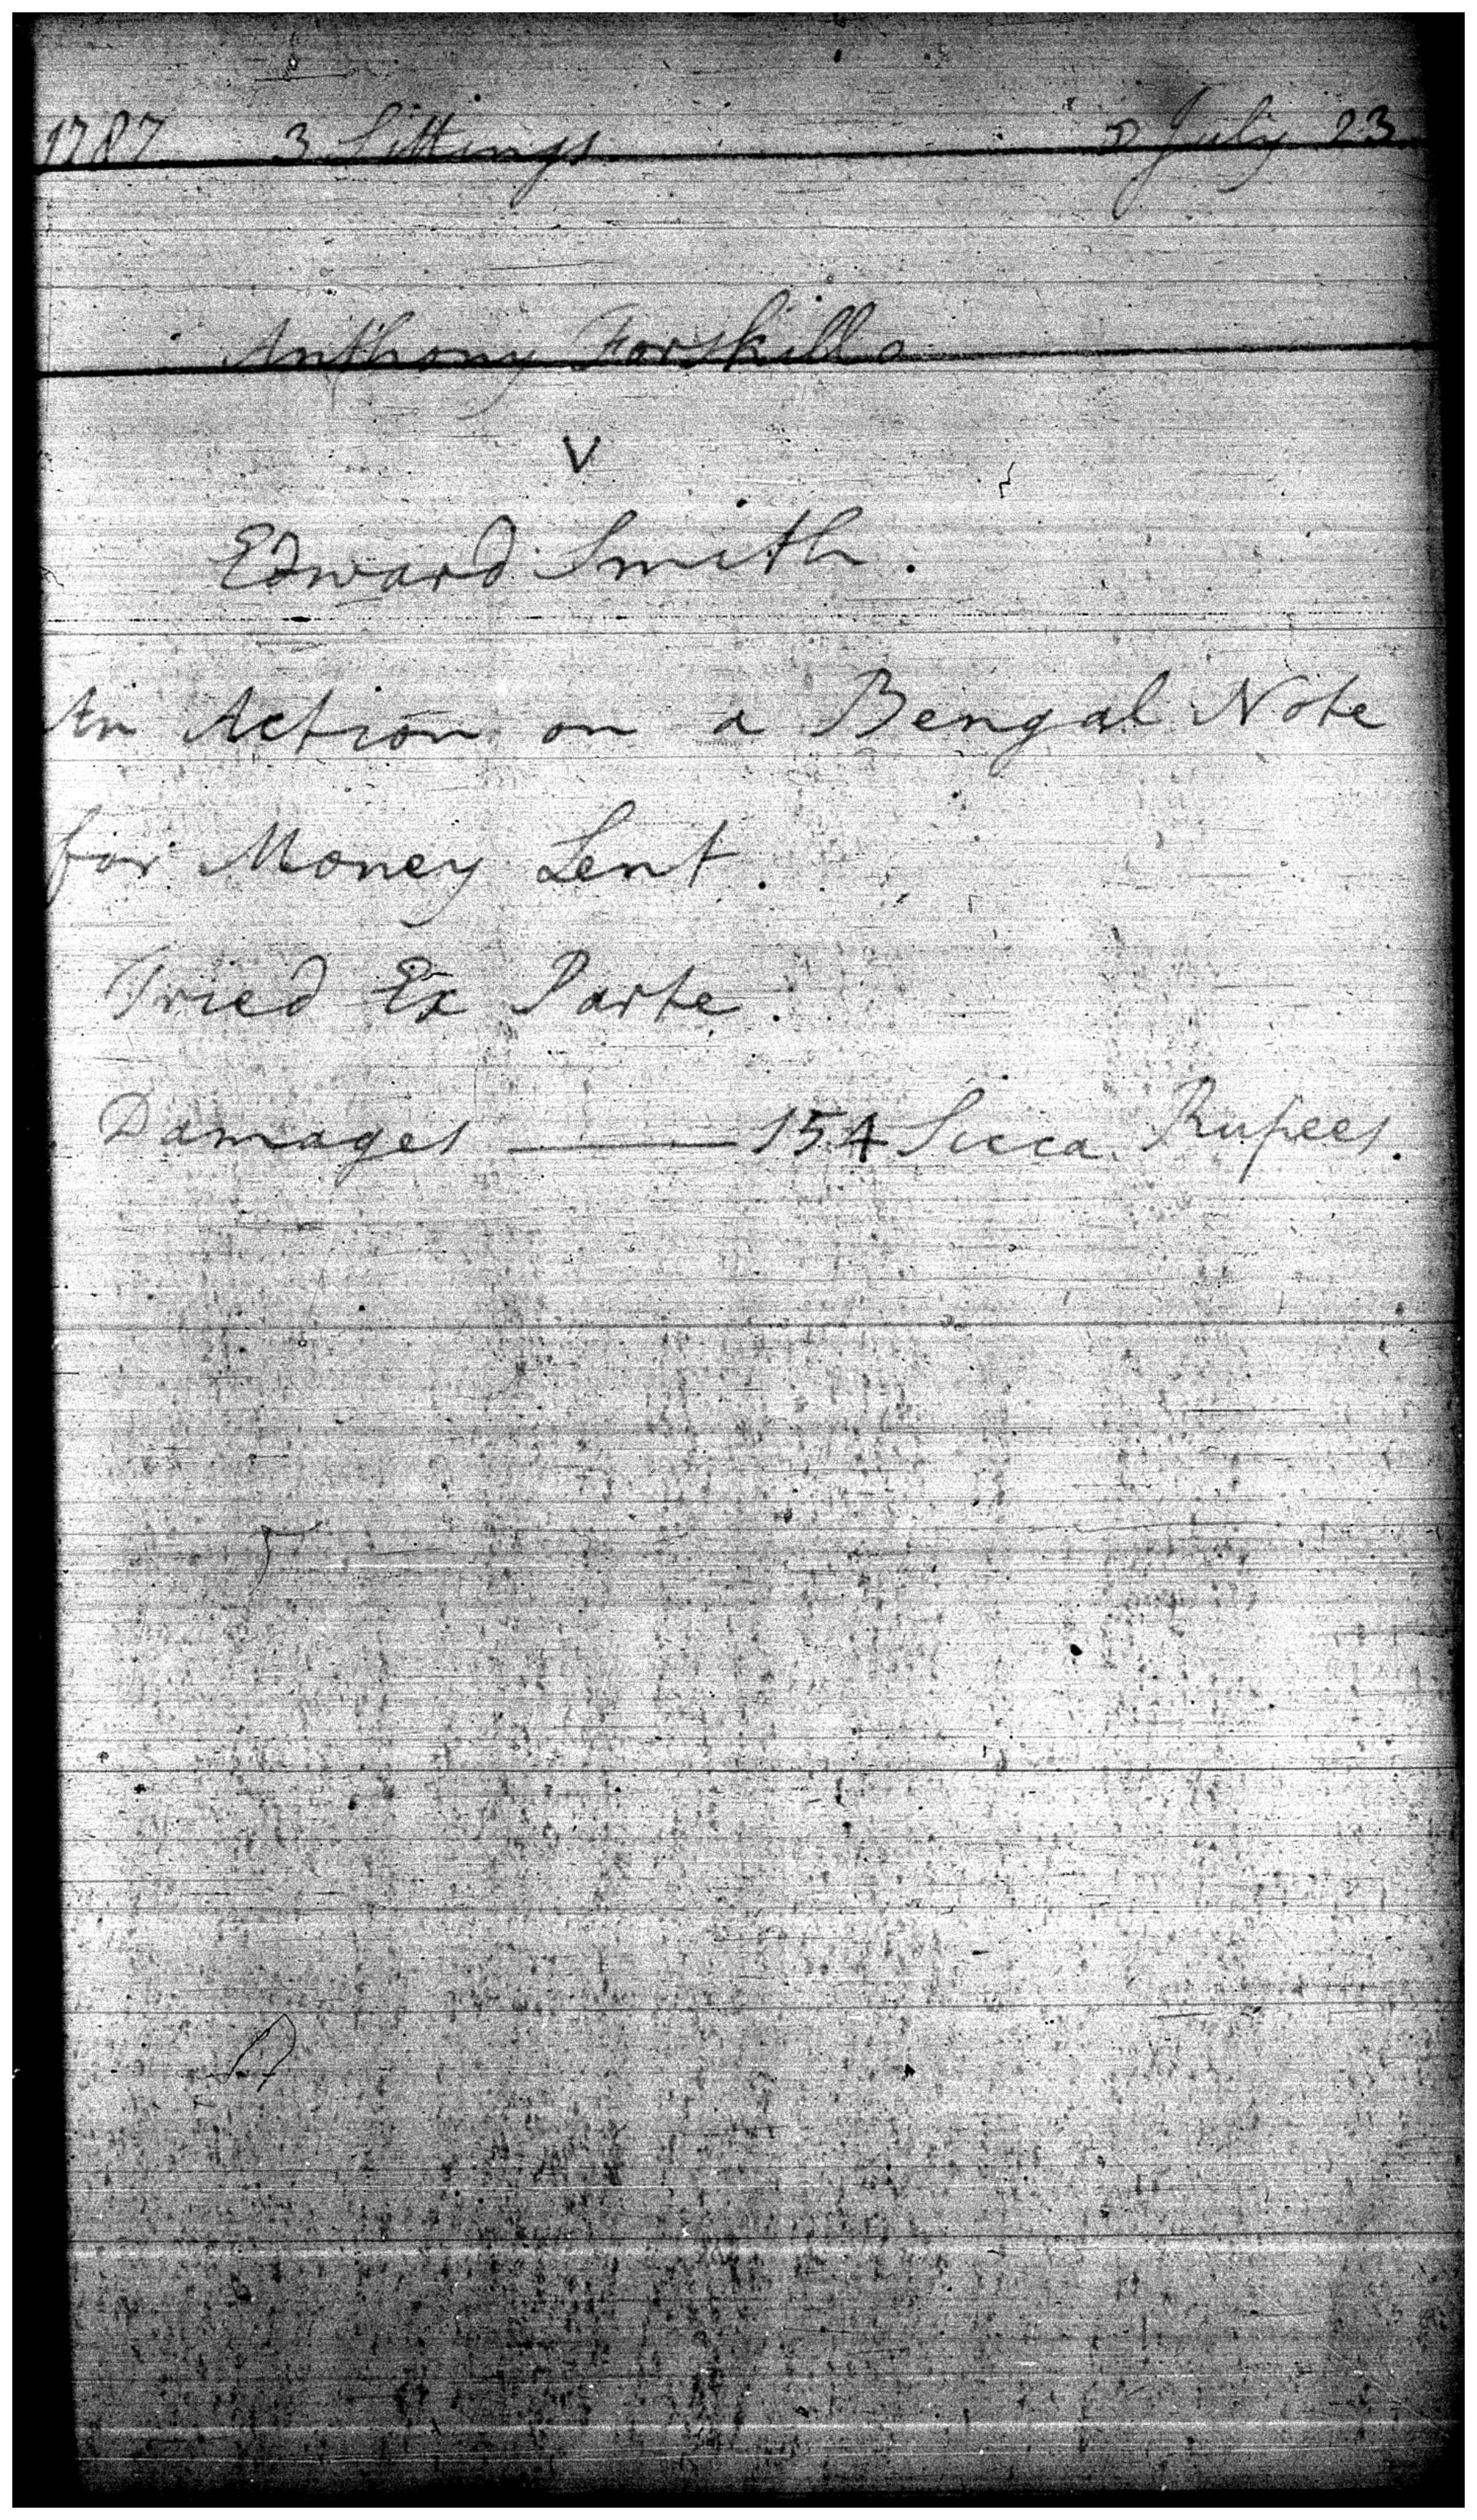 1787 3 Sittings ☽ July 23
Anthony Forskilla
V
Edward Smith.
An Action on a Bengal Note
for Money Lent.
Tried Ex Parte.
Damages —— 154 Sicca Rupees.